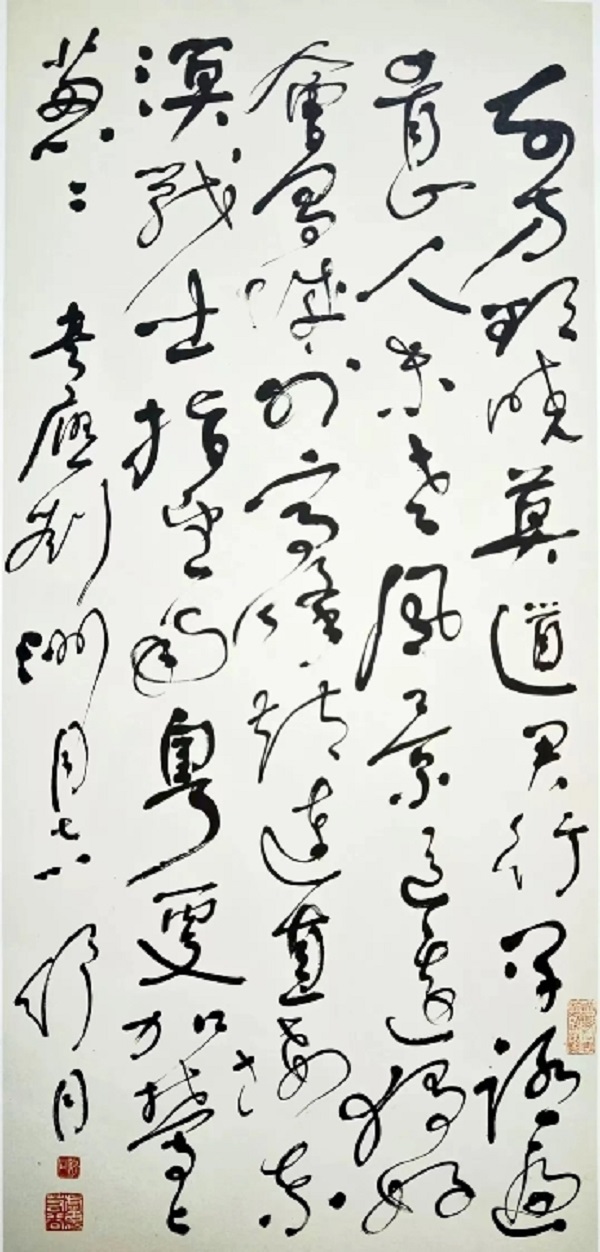 东方欲晓莫道君行早踏遍
青山人未老風景这邊独好
會昌城外高峰颠连直接东
溟战士指看南粤更加鬱々
葱々 书应